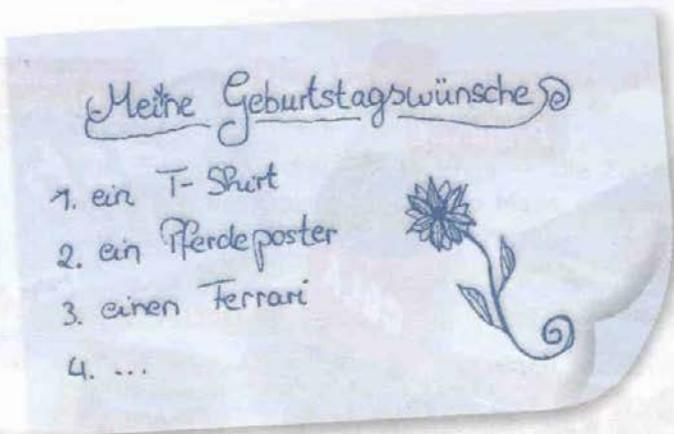 Meine Geburtstagswünsche
1. ein T-Shirt
2. ein Pferdeposter
3. einen Ferrari
4. ...